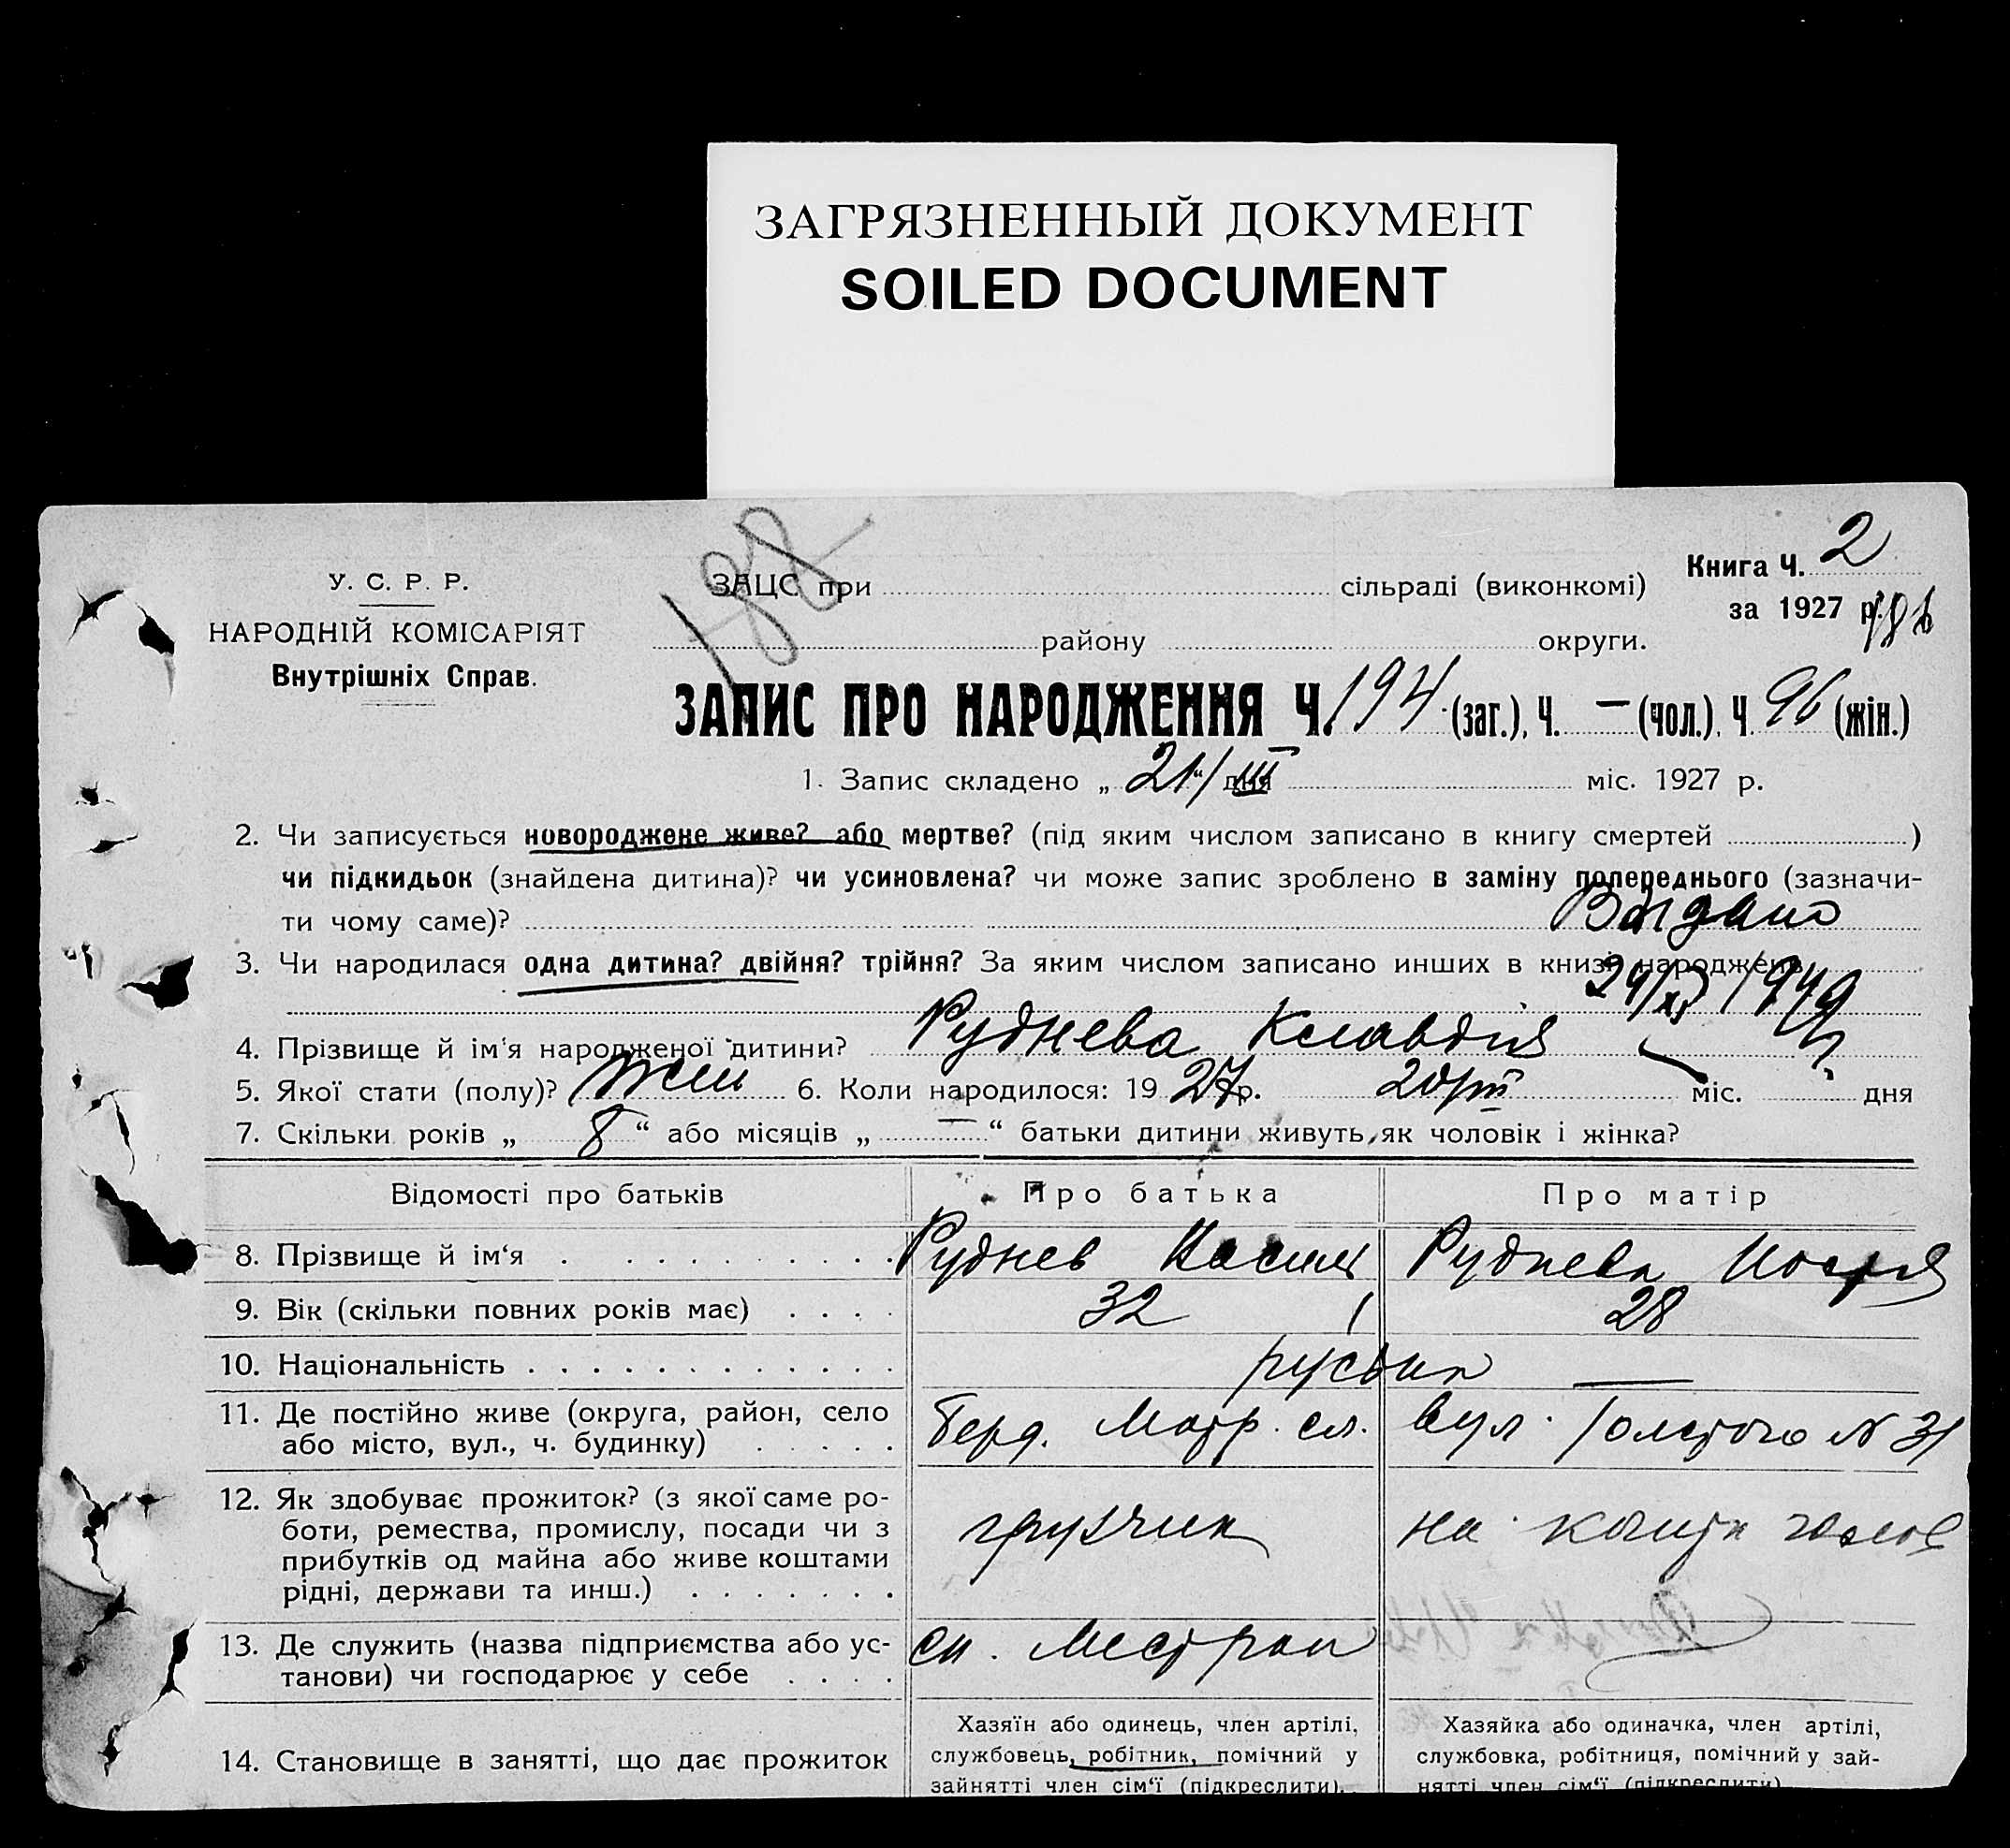 ЗАГРЯЗНЕННЫЙ ДОКУМЕНТ
SOILED DOCUMENT
188
У. С. Р. Р.
НАРОДНІЙ КОМІСАРІЯТ
Внутрішніх Справ.
ЗАЦС при сільраді (виконкомі)
району округи.
Книга Ч. 2
за 1927 р.
ЗАПИС ПРО НАРОДЖЕННЯ Ч. 194 (заг.), Ч. — (чол.), Ч. 96 (жін.)
1. Запис складено „ 21 “ / III дня міс. 1927 р.
2. Чи записується новороджене живе? або мертве? (під яким числом записано в книгу смертей )
чи підкидьок (знайдена дитина)? чи усиновлена? чи може запис зроблено в заміну попереднього (зазначи-
ти чому саме)?
3. Чи народилася одна дитина? двійня? трійня? За яким числом записано инших в книзі народжень
4. Прізвище й ім'я народженої дитини? Руднева Клавдія
5. Якої стати (полу)? жін 6. Коли народилося: 1927 р. 20/III міс. дня
7. Скільки років „ 8 “ або місяців „ — “ батьки дитини живуть як чоловік і жінка?
Відомості про батьків Про батька Про матір
8. Прізвище й ім‘я Руднев Руднева
9. Вік (скільки повних років має) 32 28
10. Національність —
11. Де постійно живе (округа, район, село Берд. сл. вул. Толстого № 31
або місто, вул., ч. будинку)
12. Як здобуває прожиток? (з якої саме ро-
боти, ремества, промислу, посади чи з грузчик на кошти
прибутків од майна або живе коштами
рідні, держави та инш.)
13. Де служить (назва підприємства або ус-
танови) чи господарює у себе
14. Становище в занятті, що дає прожиток
Хазяїн або одинець, член артілі,
службовець, робітник, помічний у
зайнятті член сім‘ї (підкреслити).
Хазяйка або одиначка, член артілі,
службовка, робітниця, помічний у зай-
нятті член сім‘ї (підкреслити)